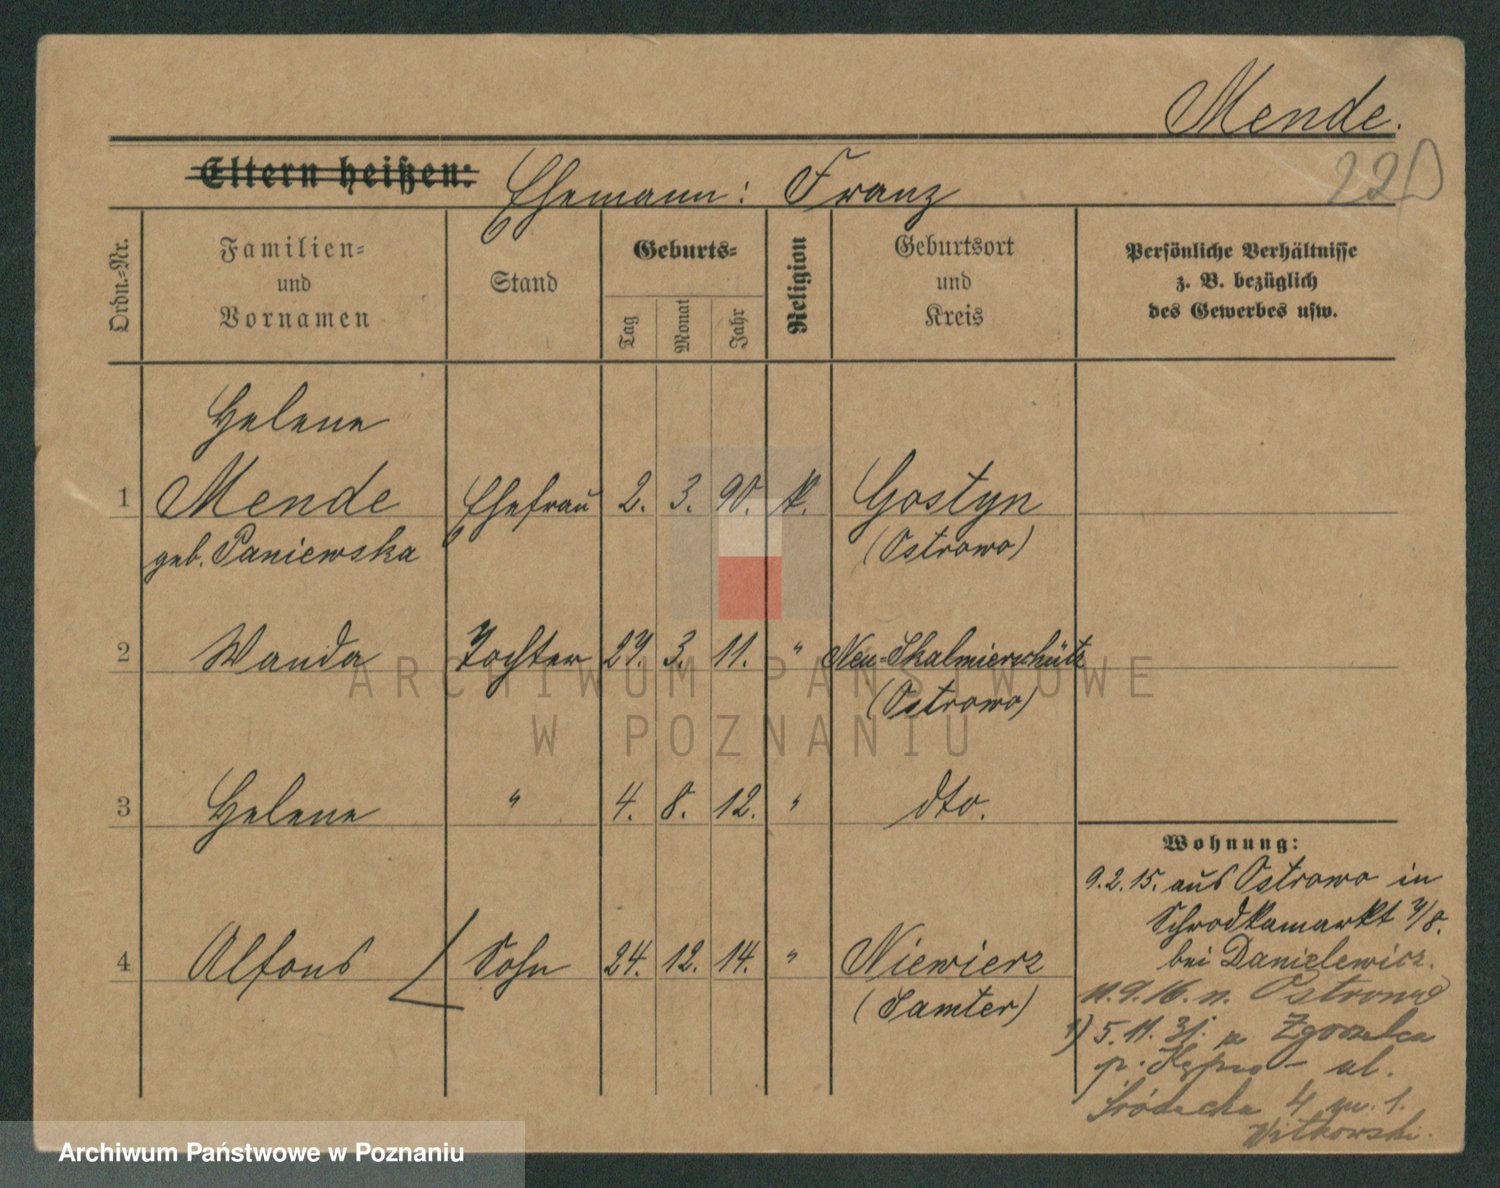 Mende.
Eltern heißen: Ehemann: Franz
Ordn.=Nr.
Familien=
und
Vornamen
Stand
Geburts=
Tag
Monat
Jahr
Religion
Geburtsort
und
Kreis
Persönliche Verhältnisse
z. B. bezüglich
des Gewerbes usw.
Helene
1 Mende Ehefrau 2. 3. 90. k. Gostyn
geb. Paniewska (Ostrowo)
2 Wanda Tochter 27. 3. 11. " Neu-Skalmierschütz
(Ostrowo)
3 Helene " 4. 8. 12. " dto.
4 Alfons Sohn 24. 12. 14. " Niewierz
(Samter)
Wohnung:
9.2.15. aus Ostrowo in
Schrodkamarkt 7/8.
bei Danielewicz.
11.9.16. n. Ostrowo
1) 5.11.31. z
p. Kępno - ul.
Śródecka 4 m. 1.
Witkowski.
ARCHIWUM PAŃSTWOWE
W POZNANIU
Archiwum Państwowe w Poznaniu